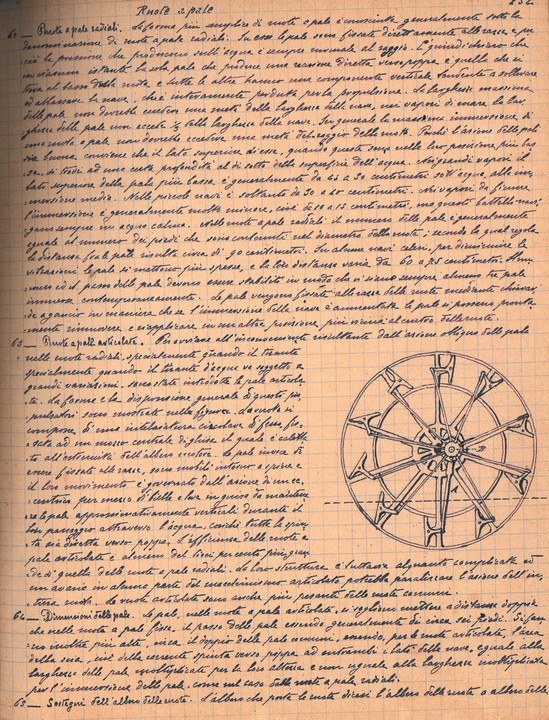 Ruote a pale
62 — Ruote a pale radiali. La forma più semplice di ruote a pale è conosciuta generalmente sotto la
denominazione di ruote a pale radiali. In esse le pale sono fissate direttamente alle razze e per
ciò la pressione che producono sull'acqua è sempre normale al raggio. È quindi chiaro che
in ciascun istante la sola pala che produce una reazione diretta verso poppa è quella che si
trova al basso della ruota e tutte le altre hanno una componente verticale tendente a sollevare
od abbassare la nave, che è interamente perduta per la propulsione. La larghezza massima
delle pale non dovrebbe eccedere una metà della larghezza della nave, nei vapori di mare la lar-
ghezza delle pale non eccede 1/3 della larghezza della nave. In generale la massima immersione di
una ruota a pale non dovrebbe eccedere una metà del raggio della ruota. Perchè l'azione delle pale
sia buona conviene che il lato superiore di esse, quando queste sono nella loro posizione più bas-
sa, si trovi ad una certa profondità al di sotto della superficie dell'acqua. Nei grandi vapori il
lato superiore della pala più bassa è generalmente da 45 a 50 centimetri sott'acqua, alla im-
mersione media. Nelle piccole navi è soltanto da 30 a 40 centimetri. Nei vapori da fiume
l'immersione è generalmente molto minore, cioè da 10 a 15 centimetri, ma questi battelli navi-
gano sempre in acque calme. Nelle ruote a pale radiali il numero delle pale è generalmente
eguale al numero dei piedi che sono contenuti nel diametro della ruota; secondo la qual regola
la distanza fra le pale risulta circa di 90 centimetri. In alcune navi celeri, per diminuire le
vibrazioni le pale si mettono più spesse, e la loro distanza varia da 60 a 75 centimetri.
immerse contemporaneamente. Le pale vengono fissate alle razze della ruota mediante chiavar-
de a gancio in maniera che se l'immersione della nave è aumentata le pale si possono pronta-
mente rimuovere e riapplicare in un'altra posizione, più vicina al centro della ruota.
63 — Ruote a pale articolate. Per ovviare all'inconveniente risultante dall'azione obliqua delle pale
nelle ruote radiali, specialmente quando il tirante
specialmente quando il tirante d'acqua va soggetto a
grandi variazioni, sono state introdotte le pale articola-
te. La forma e la disposizione generale di questi pro-
pulsatori sono mostrate nella figura. La ruota si
compone d'una intelaiatura circolare di ferro, fis-
sata ad un mozzo centrale di ghisa il quale è caletta-
to all'estremità dell'albero motore. Le pale invece di
essere fissate alle razze, sono mobili intorno a perni e
il loro movimento è governato dall'azione di un ec-
centrico per mezzo di bielle e leve in guisa da mantene-
re le pale approssimativamente verticali durante il
loro passaggio attraverso l'acqua, cosichè tutta la spin-
ta sia diretta verso poppa. L'efficienza delle ruote a
pale articolate è almeno del dieci per cento più gran-
de di quella delle ruote a pale radiali. La loro struttura è tuttavia alquanto complicata ed
un'avaria in alcuna parte del macchinismo articolato potrebbe paralizzare l'azione dell'in-
tera ruota. Le ruote articolate sono anche più pesanti delle ruote comuni.
64 — Dimensioni delle pale. Le pale, nelle ruote a pale articolate, si sogliono mettere a distanza doppia
che nelle ruote a pale fisse, il passo delle pale essendo generalmente di circa sei piedi. Si fan-
no inoltre più alte, circa il doppio delle pale comuni, essendo, per le ruote articolate, l'area
della scia, cioè della corrente spinta verso poppa ad entrambi i lati della nave, eguale alla
larghezza delle pale moltiplicata per la loro altezza e non uguale alla larghezza moltiplicata
per l'immersione della pala, come nel caso delle ruote a pale radiali.
65 — Sostegni dell'albero delle ruote. L'albero che porta le ruote dicesi l'albero delle ruote o albero delle